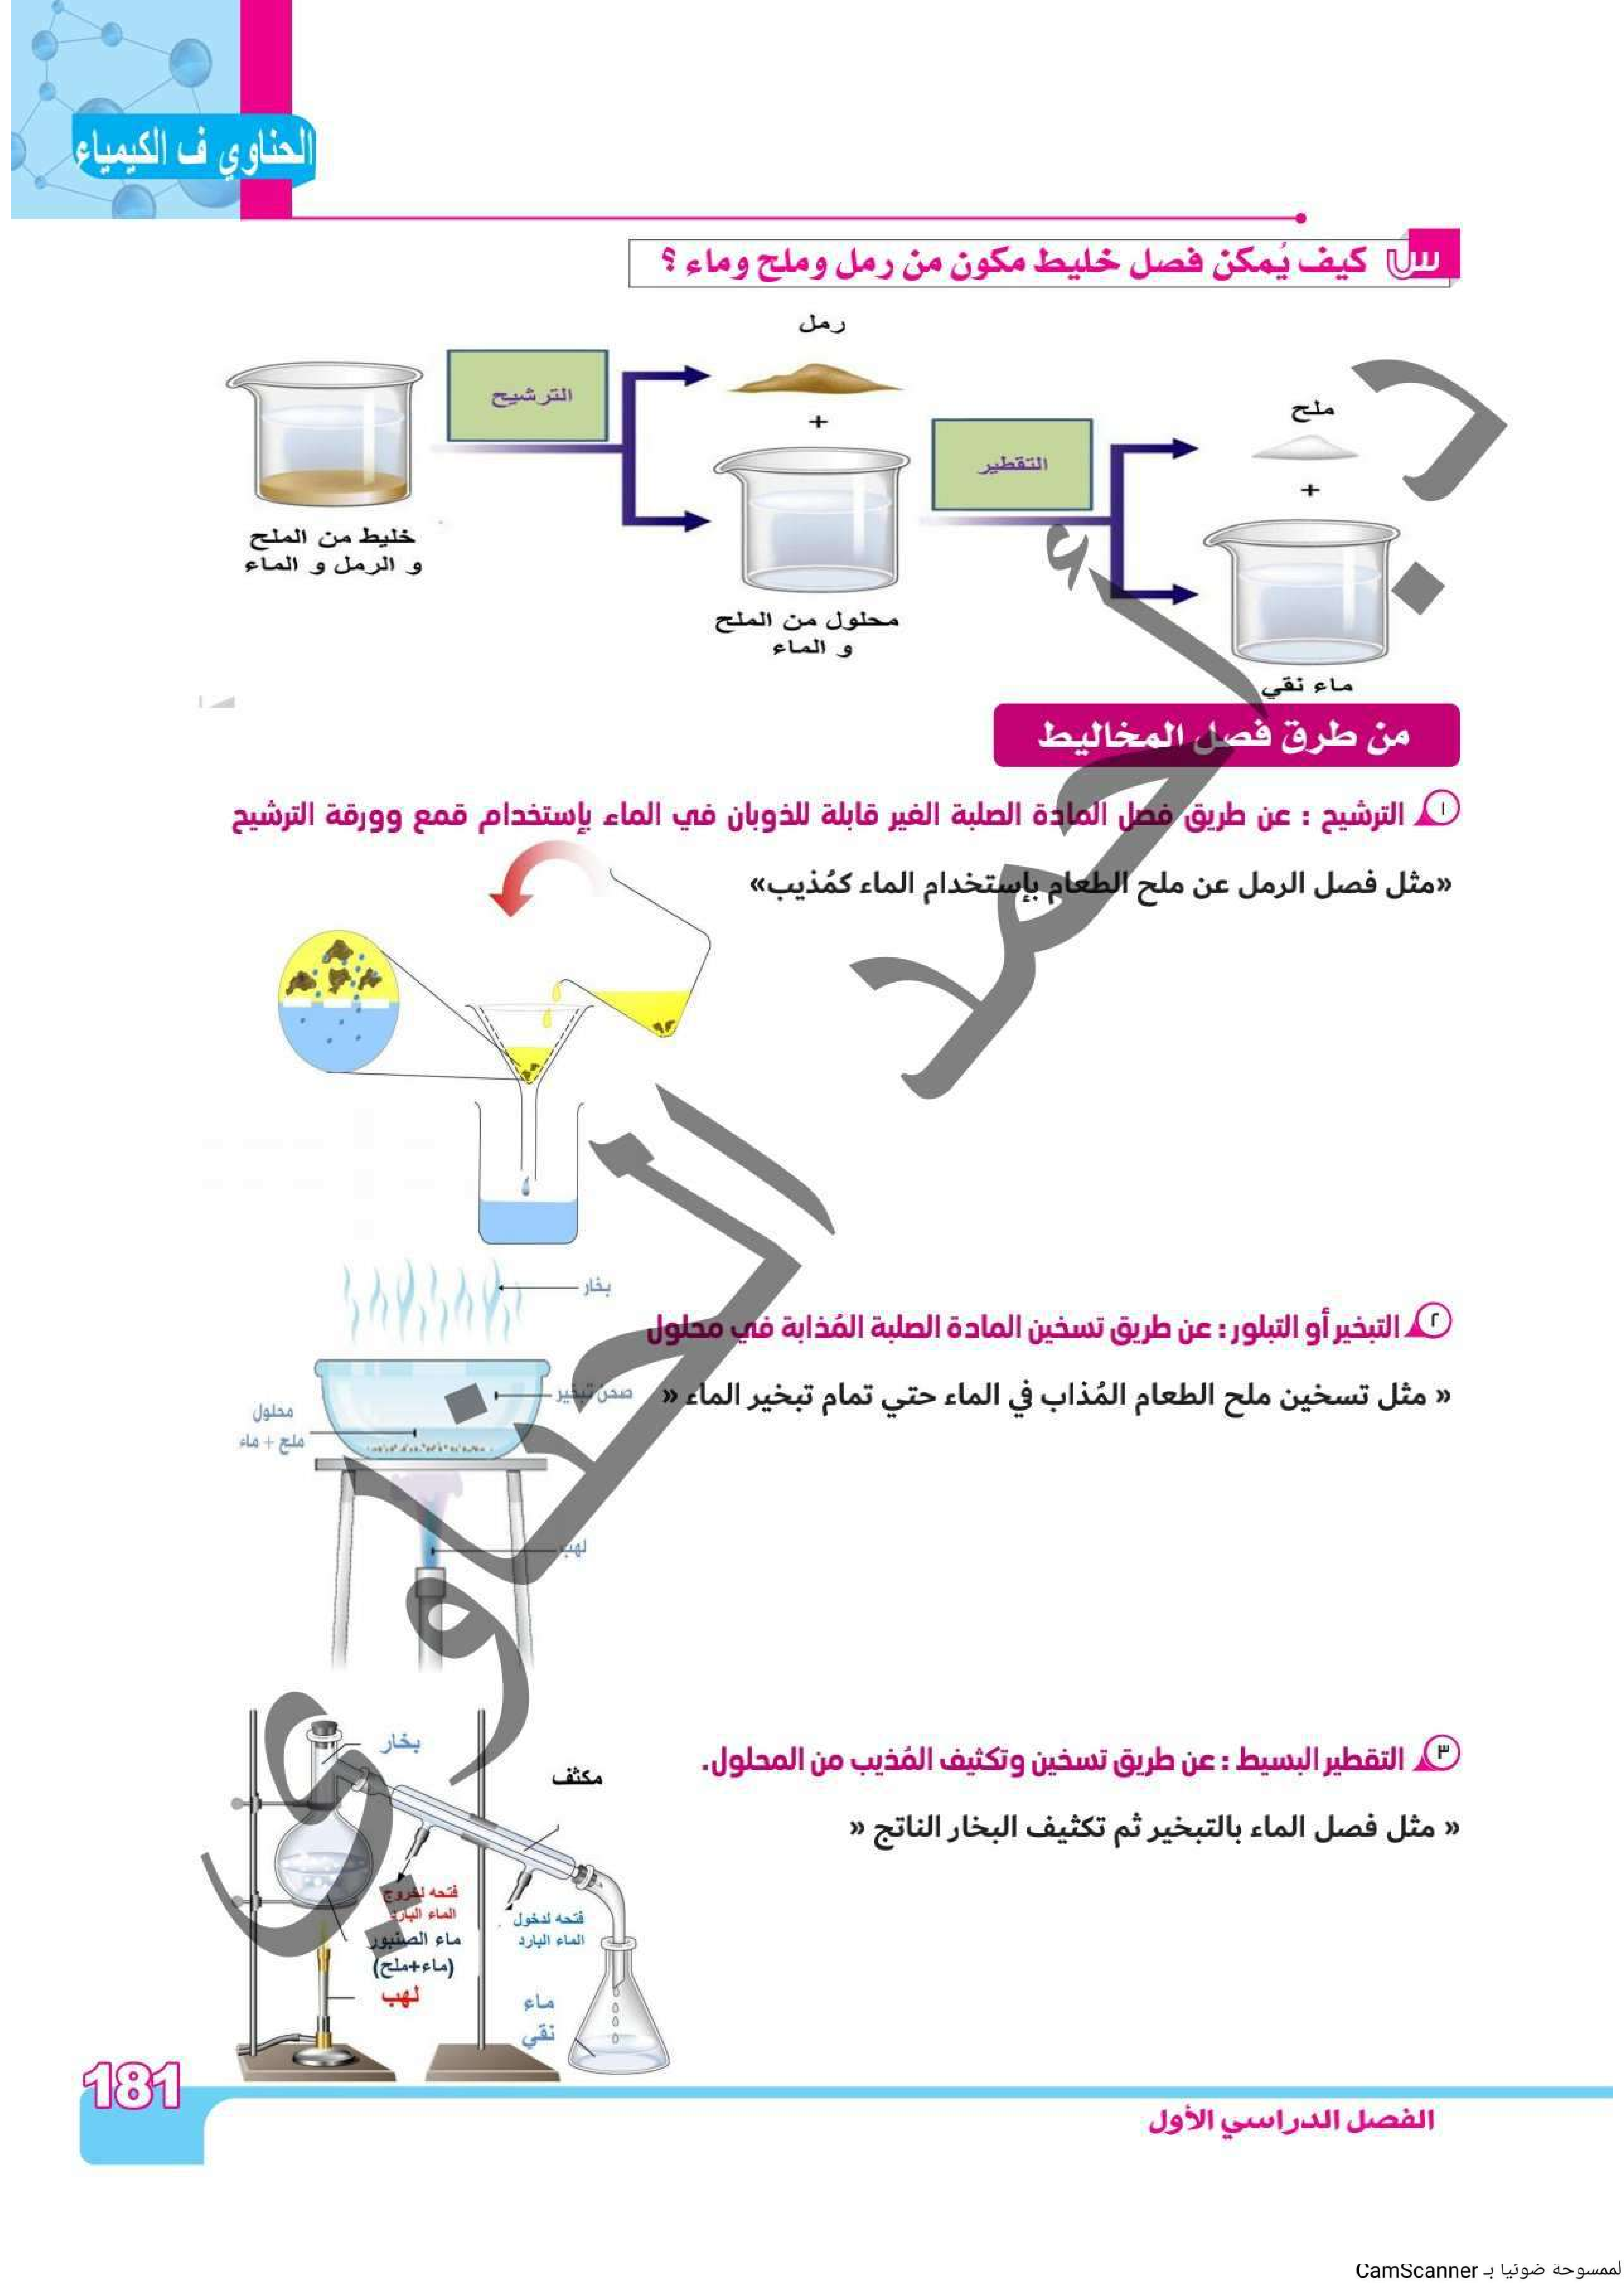 الحناوي ف الكيمياء
س كيف يُمكن فصل خليط مكون من رمل وملح وماء ؟
رمل
الترشيح
+
ملح
التقطير
+
خليط من الملح
و الرمل و الماء
محلول من الملح
و الماء
ماء نقي
من طرق فصل المخاليط
١ الترشيح : عن طريق فصل المادة الصلبة الغير قابلة للذوبان في الماء بإستخدام قمع وورقة الترشيح
«مثل فصل الرمل عن ملح الطعام بإستخدام الماء كمُذيب»
بخار
٢ التبخير أو التبلور : عن طريق تسخين المادة الصلبة المُذابة في محلول
« مثل تسخين ملح الطعام المُذاب في الماء حتي تمام تبخير الماء «
صحن تبخير
محلول
ملح + ماء
لهب
٣ التقطير البسيط : عن طريق تسخين وتكثيف المُذيب من المحلول.
« مثل فصل الماء بالتبخير ثم تكثيف البخار الناتج «
بخار
مكثف
فتحه لخروج
الماء البارد
فتحه لدخول
الماء البارد
ماء الصنبور
(ماء+ملح)
لهب
ماء
نقي
د. أحمد الحناوي
181
الفصل الدراسي الأول
لممسوحة ضوئيا بـ CamScanner